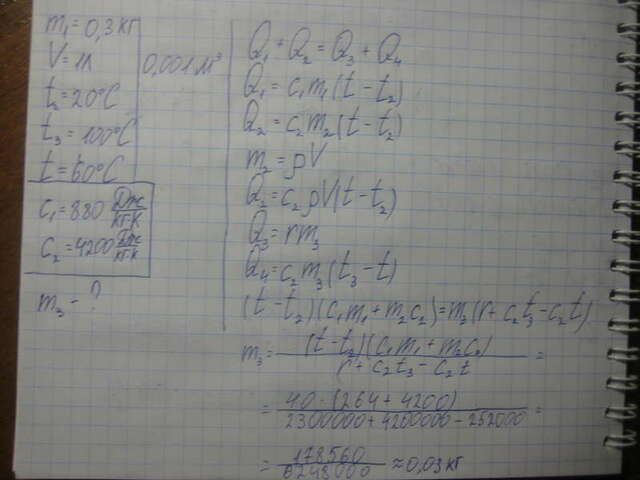 m₁ = 0,3 кг
V = 1л 0,001 м³
t₂ = 20°C
t₃ = 100°C
t = 60°C
c₁ = 880 Дж/кг·К
c₂ = 4200 Дж/кг·К
m₃ - ?
Q₁ + Q₂ = Q₃ + Q₄
Q₁ = c₁m₁(t - t₂)
Q₂ = c₂m₂(t - t₂)
m₂ = ρV
Q₂ = c₂ρV(t - t₂)
Q₃ = rm₃
Q₄ = c₂m₃(t₃ - t)
(t - t₂)(c₁m₁ + m₂c₂) = m₃(r + c₂t₃ - c₂t)
m₃ = (t - t₂)(c₁m₁ + m₂c₂) / r + c₂t₃ - c₂t =
= 40 · (264 + 4200) / 2300000 + 4200000 - 252000 =
= 178560 / 6248000 ≈ 0,03 кг